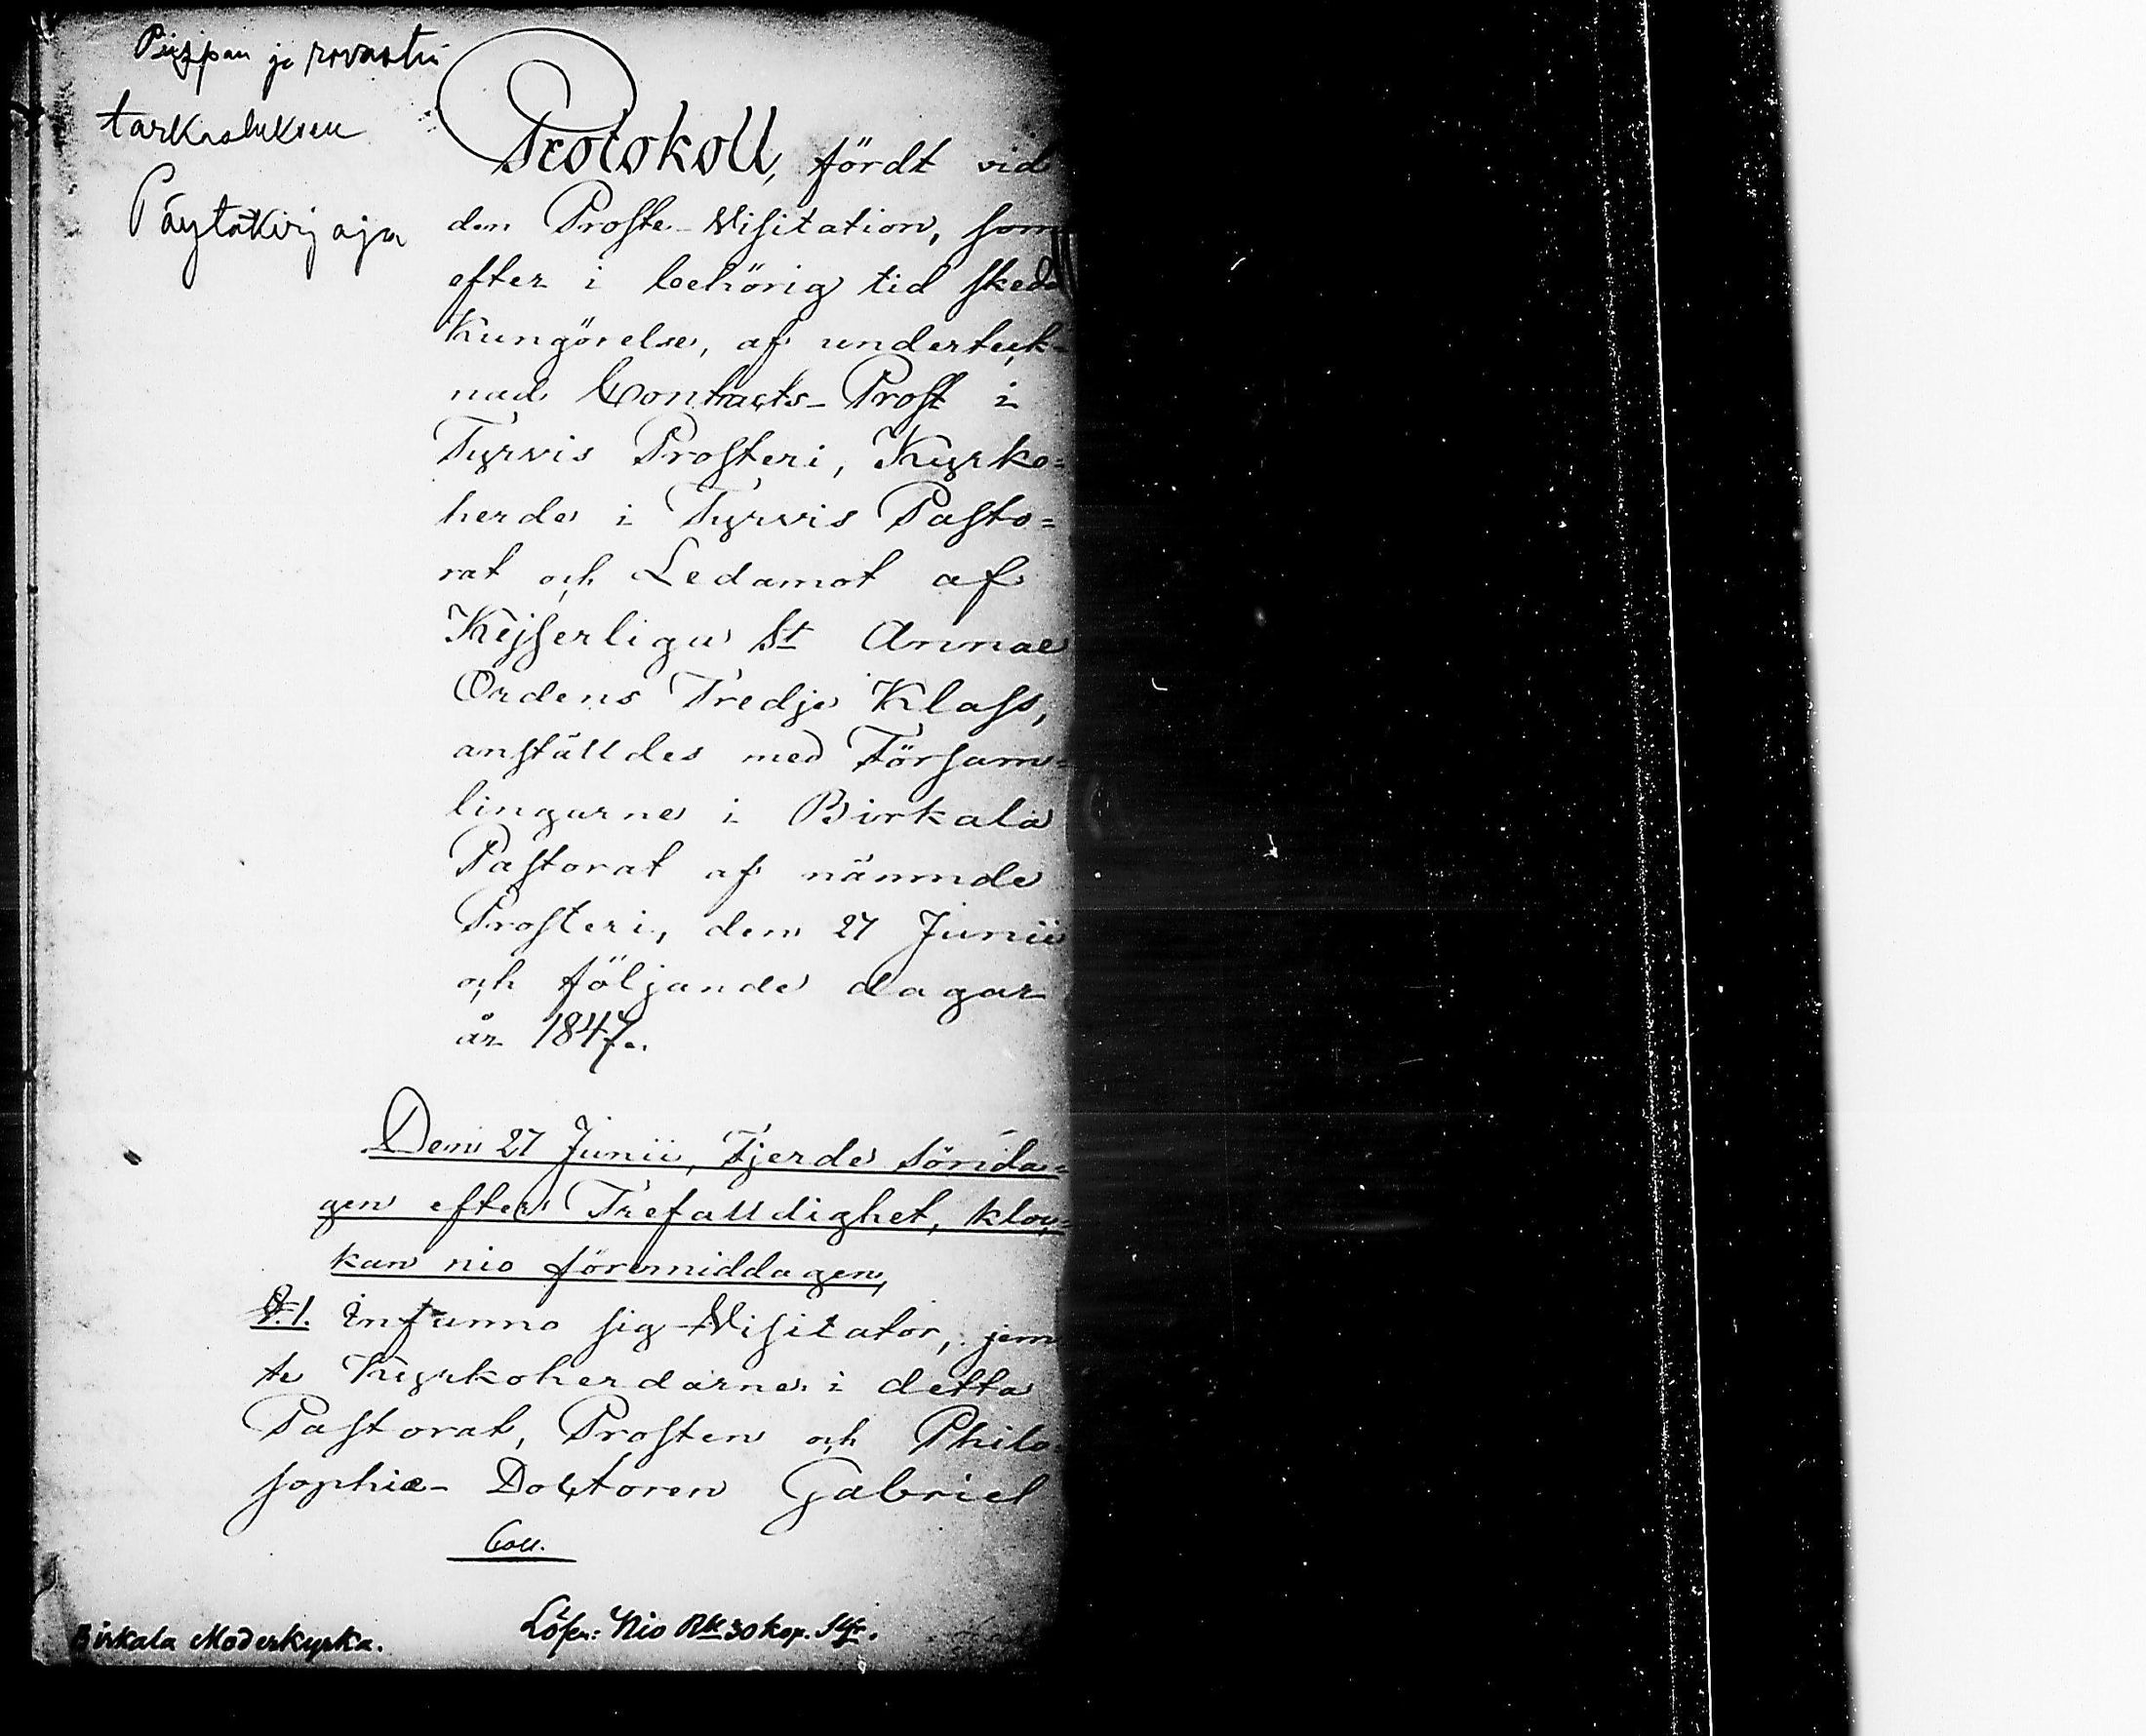 Piispan ja rovastin
tarkastuksen
Pöytäkirjoja
Protokoll, fördt vid
den Proste-Visitation, som
efter i behörig tid skedd
Kungörelse, af underteck-
nad Contracts-Prost i
Tyrvis Prosteri, Kyrko=
herde i Tyrvis Pasto=
rat och Ledamot af
Kejserliga St Annae
Ordens Tredje Klass,
anställdes med Försam=
lingarne i Birkala
Pastorat af nämnde
Prosteri, den 27 Junii
och följande dagar
år 1847.
Den 27 Junii, Fjerde sönda=
gen efter Trefalldighet, kloc=
kan nio förmiddagen,
§.1. infunno sig Visitator, jem
te Kyrkoherdarne i detta
Pastorat, Prosten och Philo-
sophiæ-Doctoren Gabriel
Coll.
Lösen: Nio Rbl 30 kop. Slfr.
Birkala Moderkyrka.